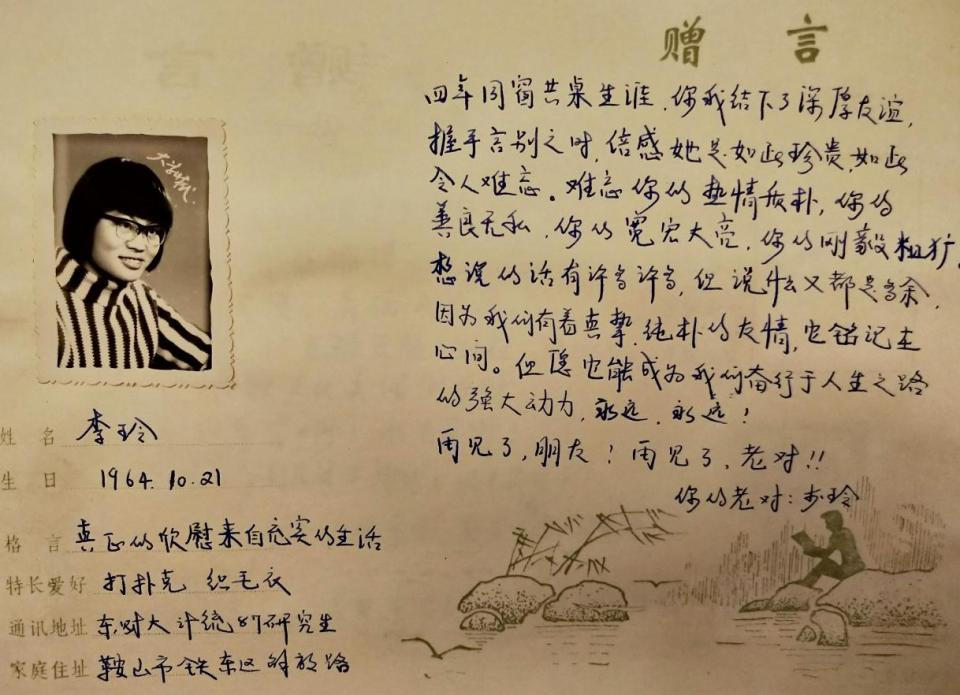 赠言
四年同窗共桌生涯，你我结下了深厚友谊，
握手言别之时，倍感她是如此珍贵，如此
令人难忘。难忘你的热情质朴，你的
善良无私，你的宽宏大亮，你的刚毅粗犷，
想说的话有许多许多，但说什么又都是多余，
因为我们有着真挚、纯朴的友情，它铭记在
心间。但愿它能成为我们奋行于人生之路
的强大动力，永远，永远！
再见了，朋友！再见了，老对！！
你的老对：李玲
姓名 李玲
生日 1964.10.21
格言 真正的欣慰来自充实的生活
特长爱好 打扑克 织毛衣
通讯地址 东财大计统87研究生
家庭住址 鞍山市铁东区解放路